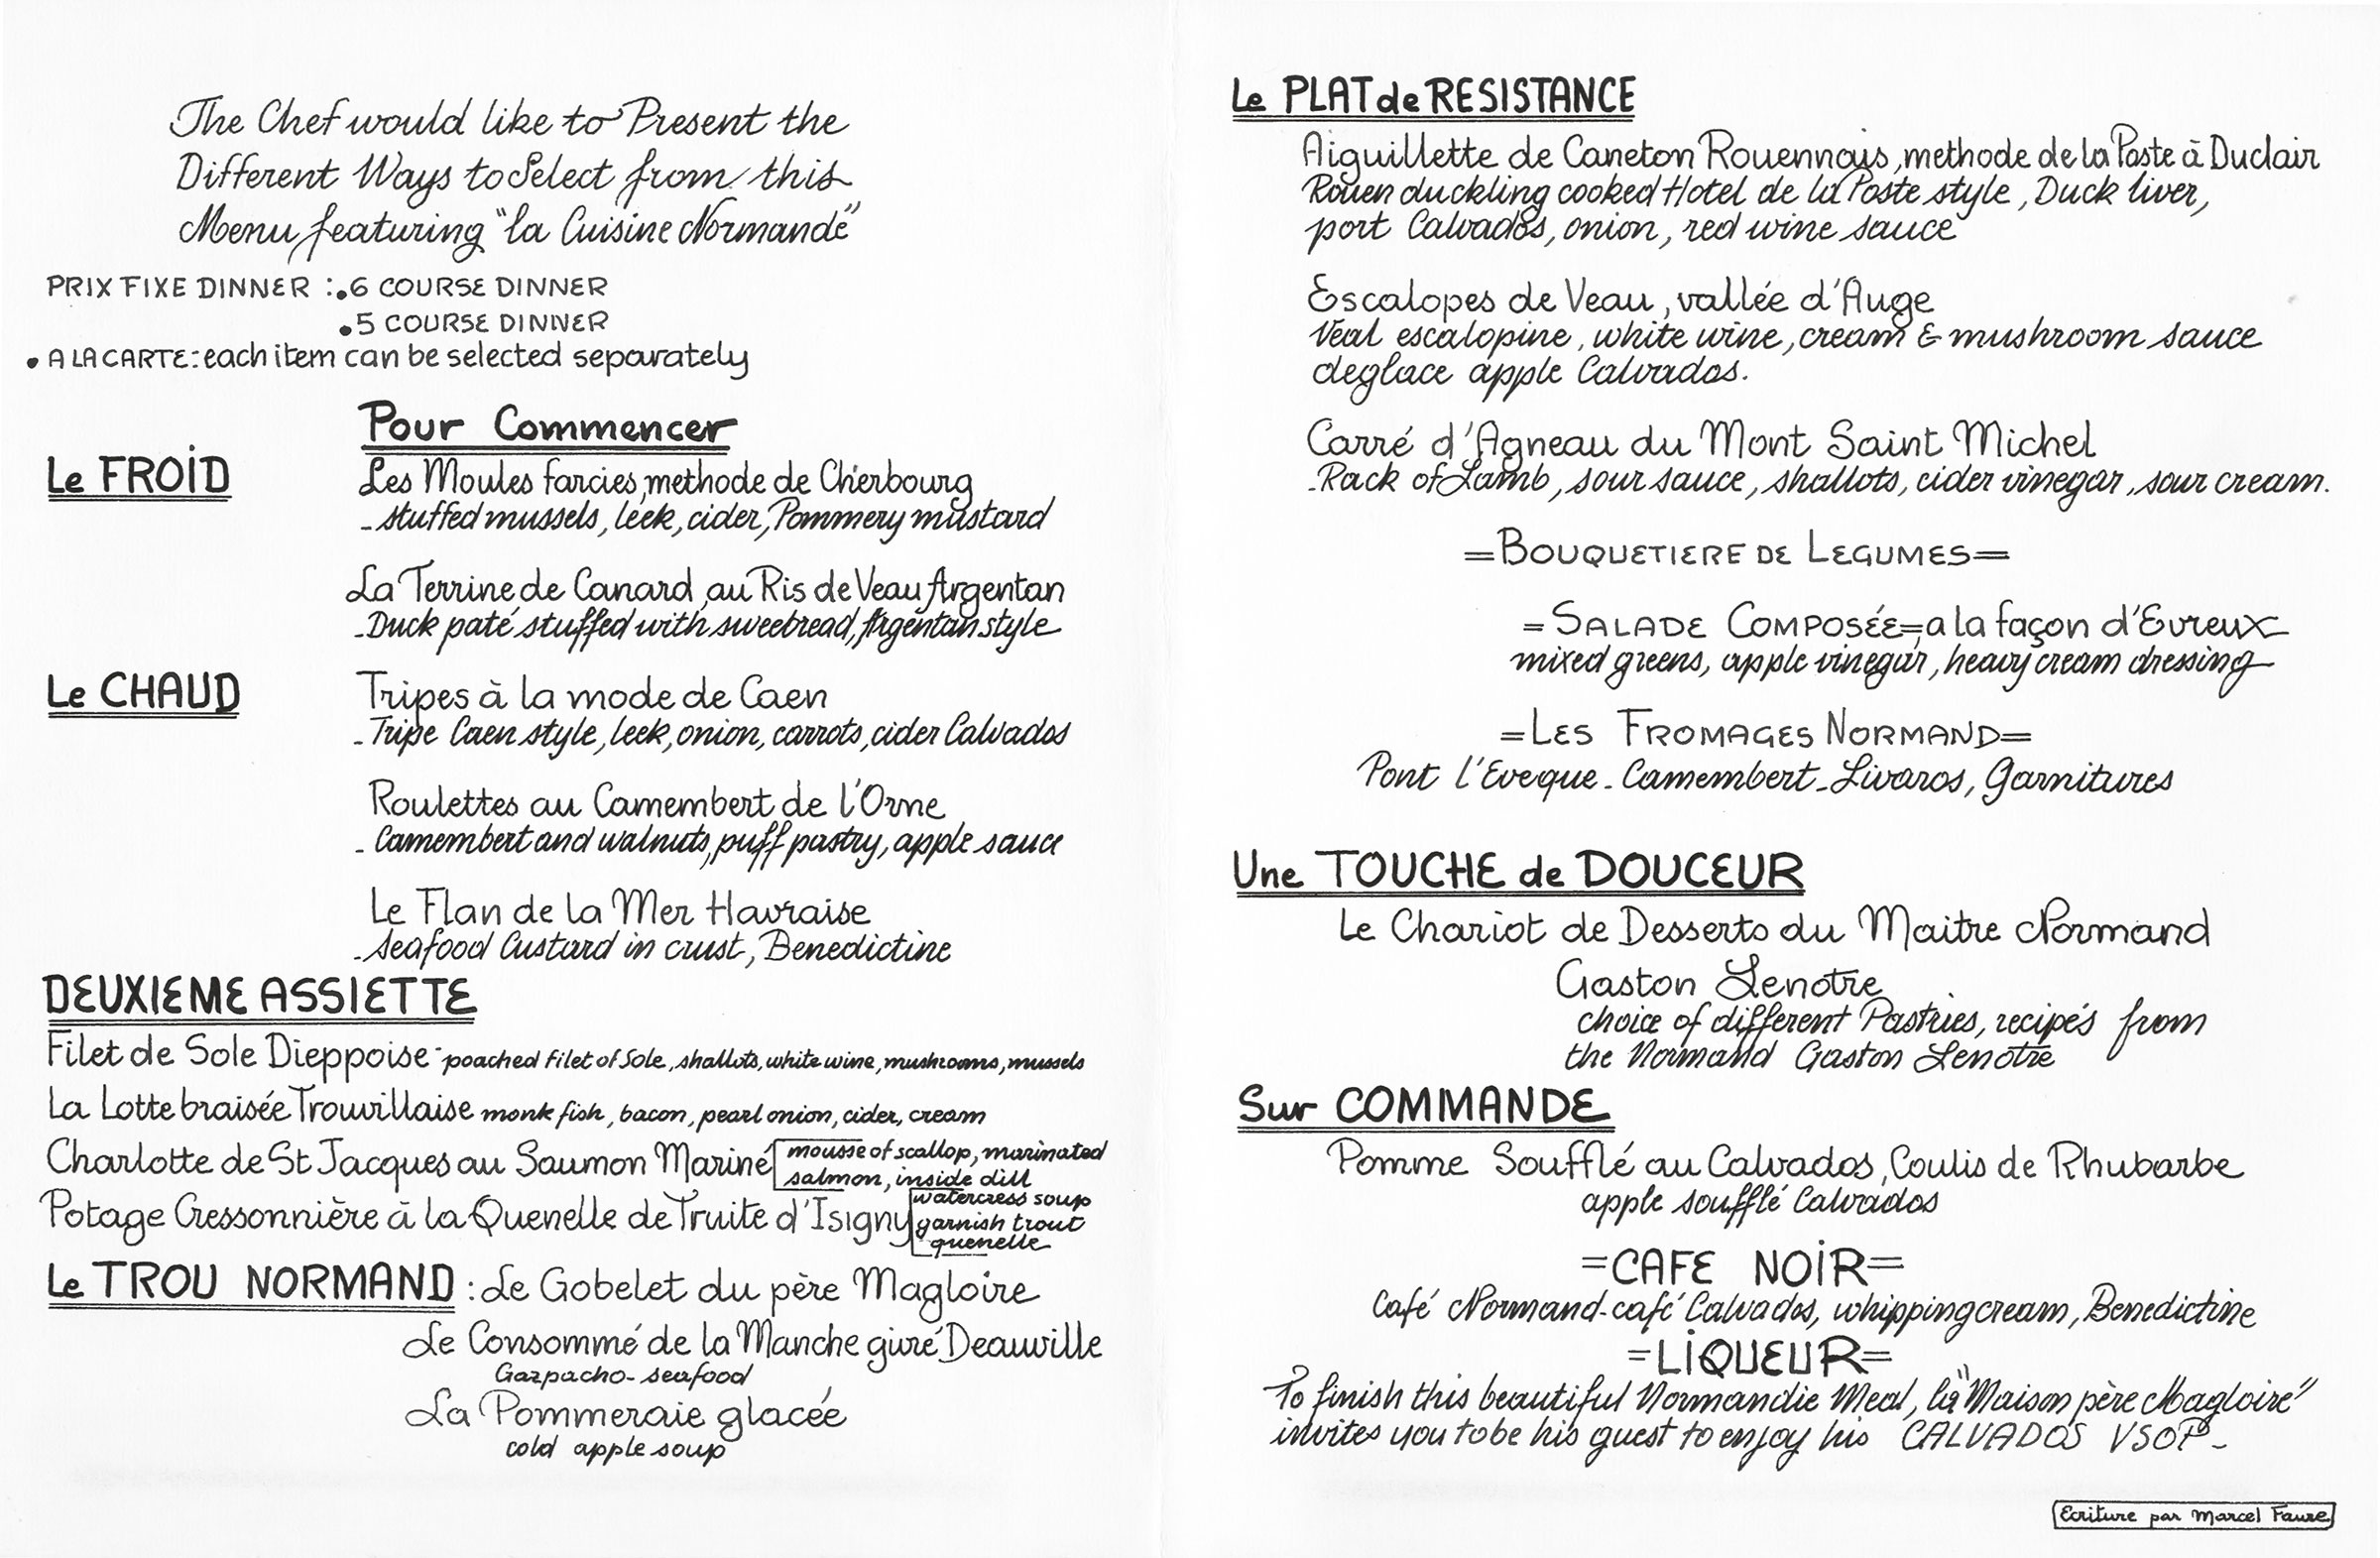 The Chef would like to Present the
Different Ways to Select from this
Menu featuring "la Cuisine Normande"
PRIX FIXE DINNER : .6 COURSE DINNER
.5 COURSE DINNER
. A LA CARTE: each item can be selected separately
Pour Commencer
Le FROID
Les Moules farcies, methode de Cherbourg
- stuffed mussels, leek, cider, Pommery mustard
La Terrine de Canard, au Ris de Veau Argentan
- Duck paté stuffed with sweebread, Argentan style
Le CHAUD
Tripes à la mode de Caen
- Tripe Caen style, leek, onion, carrots, cider Calvados
Roulettes au Camembert de l'Orne
- Camembert and walnuts, puff pastry, apple sauce
Le Flan de la Mer Havraise
- Seafood Custard in crust, Benedictine
DEUXIEME ASSIETTE
Filet de Sole Dieppoise - poached filet of Sole, shallots, white wine, mushrooms, mussels
La Lotte braisée Trouvillaise monk fish, bacon, pearl onion, cider, cream
Charlotte de St Jacques au Saumon Mariné mousse of scallop, marinated
salmon, inside dill
Potage Cressonnière à la Quenelle de Truite d'Isigny watercress soup
garnish trout
quenelle
Le TROU NORMAND : Le Gobelet du père Magloire
Le Consommé de la Manche givré Deauville
Gazpacho - seafood
La Pommeraie glacée
cold apple soup
Le PLAT de RESISTANCE
Aiguillette de Caneton Rouennais, methode de la Poste à Duclair
Rouen duckling cooked Hotel de la Poste style, Duck liver,
port Calvados, onion, red wine sauce
Escalopes de Veau, vallée d'Auge
Veal escalopine, white wine, cream & mushroom sauce
deglace apple Calvados.
Carré d'Agneau du Mont Saint Michel
- Rack of Lamb, sour sauce, shallots, cider vinegar, sour cream.
=BOUQUETIERE DE LEGUMES=
=SALADE COMPOSÉE=, a la façon d'Evreux
mixed greens, apple vinegar, heavy cream dressing
=LES FROMAGES NORMAND=
Pont l'Eveque - Camembert - Livaros, Garnitures
Une TOUCHE de DOUCEUR
Le Chariot de Desserts du Maitre Normand
Gaston Lenotre
choice of different Pastries, recipés from
the Normand Gaston Lenotre
Sur COMMANDE
Pomme Soufflé au Calvados, Coulis de Rhubarbe
apple soufflé Calvados
=CAFE NOIR=
Café Normand - café Calvados, whipping cream, Benedictine
=LIQUEUR=
To finish this beautiful Normandie Meal, la "Maison père Magloire"
invites you to be his guest to enjoy his CALVADOS VSOP -
Ecriture par Marcel Faure